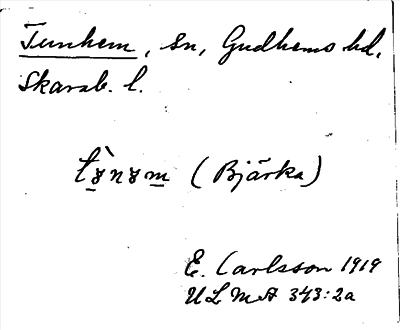 Tunhem, sn, Gudhems hd,
Skarab. l.
(Bjärka)
E. Carlsson 1919
ULMA 343:2a